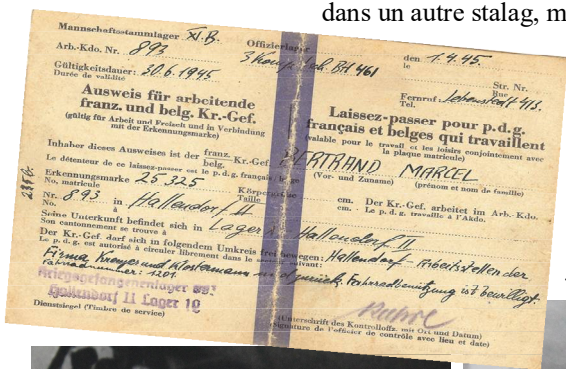 dans un autre stalag, m
Mannschaftsstammlager XI.B. Offizierlager
Arb.-Kdo. Nr. 893
den 1.4.45.
le
Gültigkeitsdauer: 30.6.1945
Durée de validité
Str. Nr.
Rue
Fernruf: Lebenstedt 413.
Tel.
Ausweis für arbeitende
franz. und belg. Kr.-Gef.
(gültig für Arbeit und Freizeit und in Verbindung
mit der Erkennungsmarke)
Laissez-passer pour p.d.g.
français et belges qui travaillent
(valable pour le travail et les loisirs conjointement avec
la plaque matricule)
Inhaber dieses Ausweises ist der franz. Kr.-Gef. BERTRAND MARCEL
belg.
Le détenteur de ce laissez-passer est le p.d.g. français
(Vor- und Zuname) (prénom et nom de famille)
Erkennungsmarke 25325 Körpergrösse cm. Der Kr.-Gef. arbeitet im Arb.-Kdo.
No. matricule Taille cm. Le p.d.g. travaille à l'Akdo.
Nr. 893 in Hallendorf II
No. à
Seine Unterkunft befindet sich in Lager Hallendorf II
Son cantonnement se trouve à
Der Kr.-Gef. darf sich in folgendem Umkreis frei bewegen: Hallendorf - Arbeitsstellen der
Le p.d.g. est autorisé à circuler librement dans le
Firma Kreyer und Klostermann und zurück. Fahrradbenützung ist bewilligt.
Fahrradnummer: 1201
Kriegsgefangenenlager
Hallendorf II Lager 19
Dienstsiegel (Timbre de service)
(Unterschrift des Kontrolloffz. mit Ort und Datum)
(Signature de l'officier de contrôle avec lieu et date)